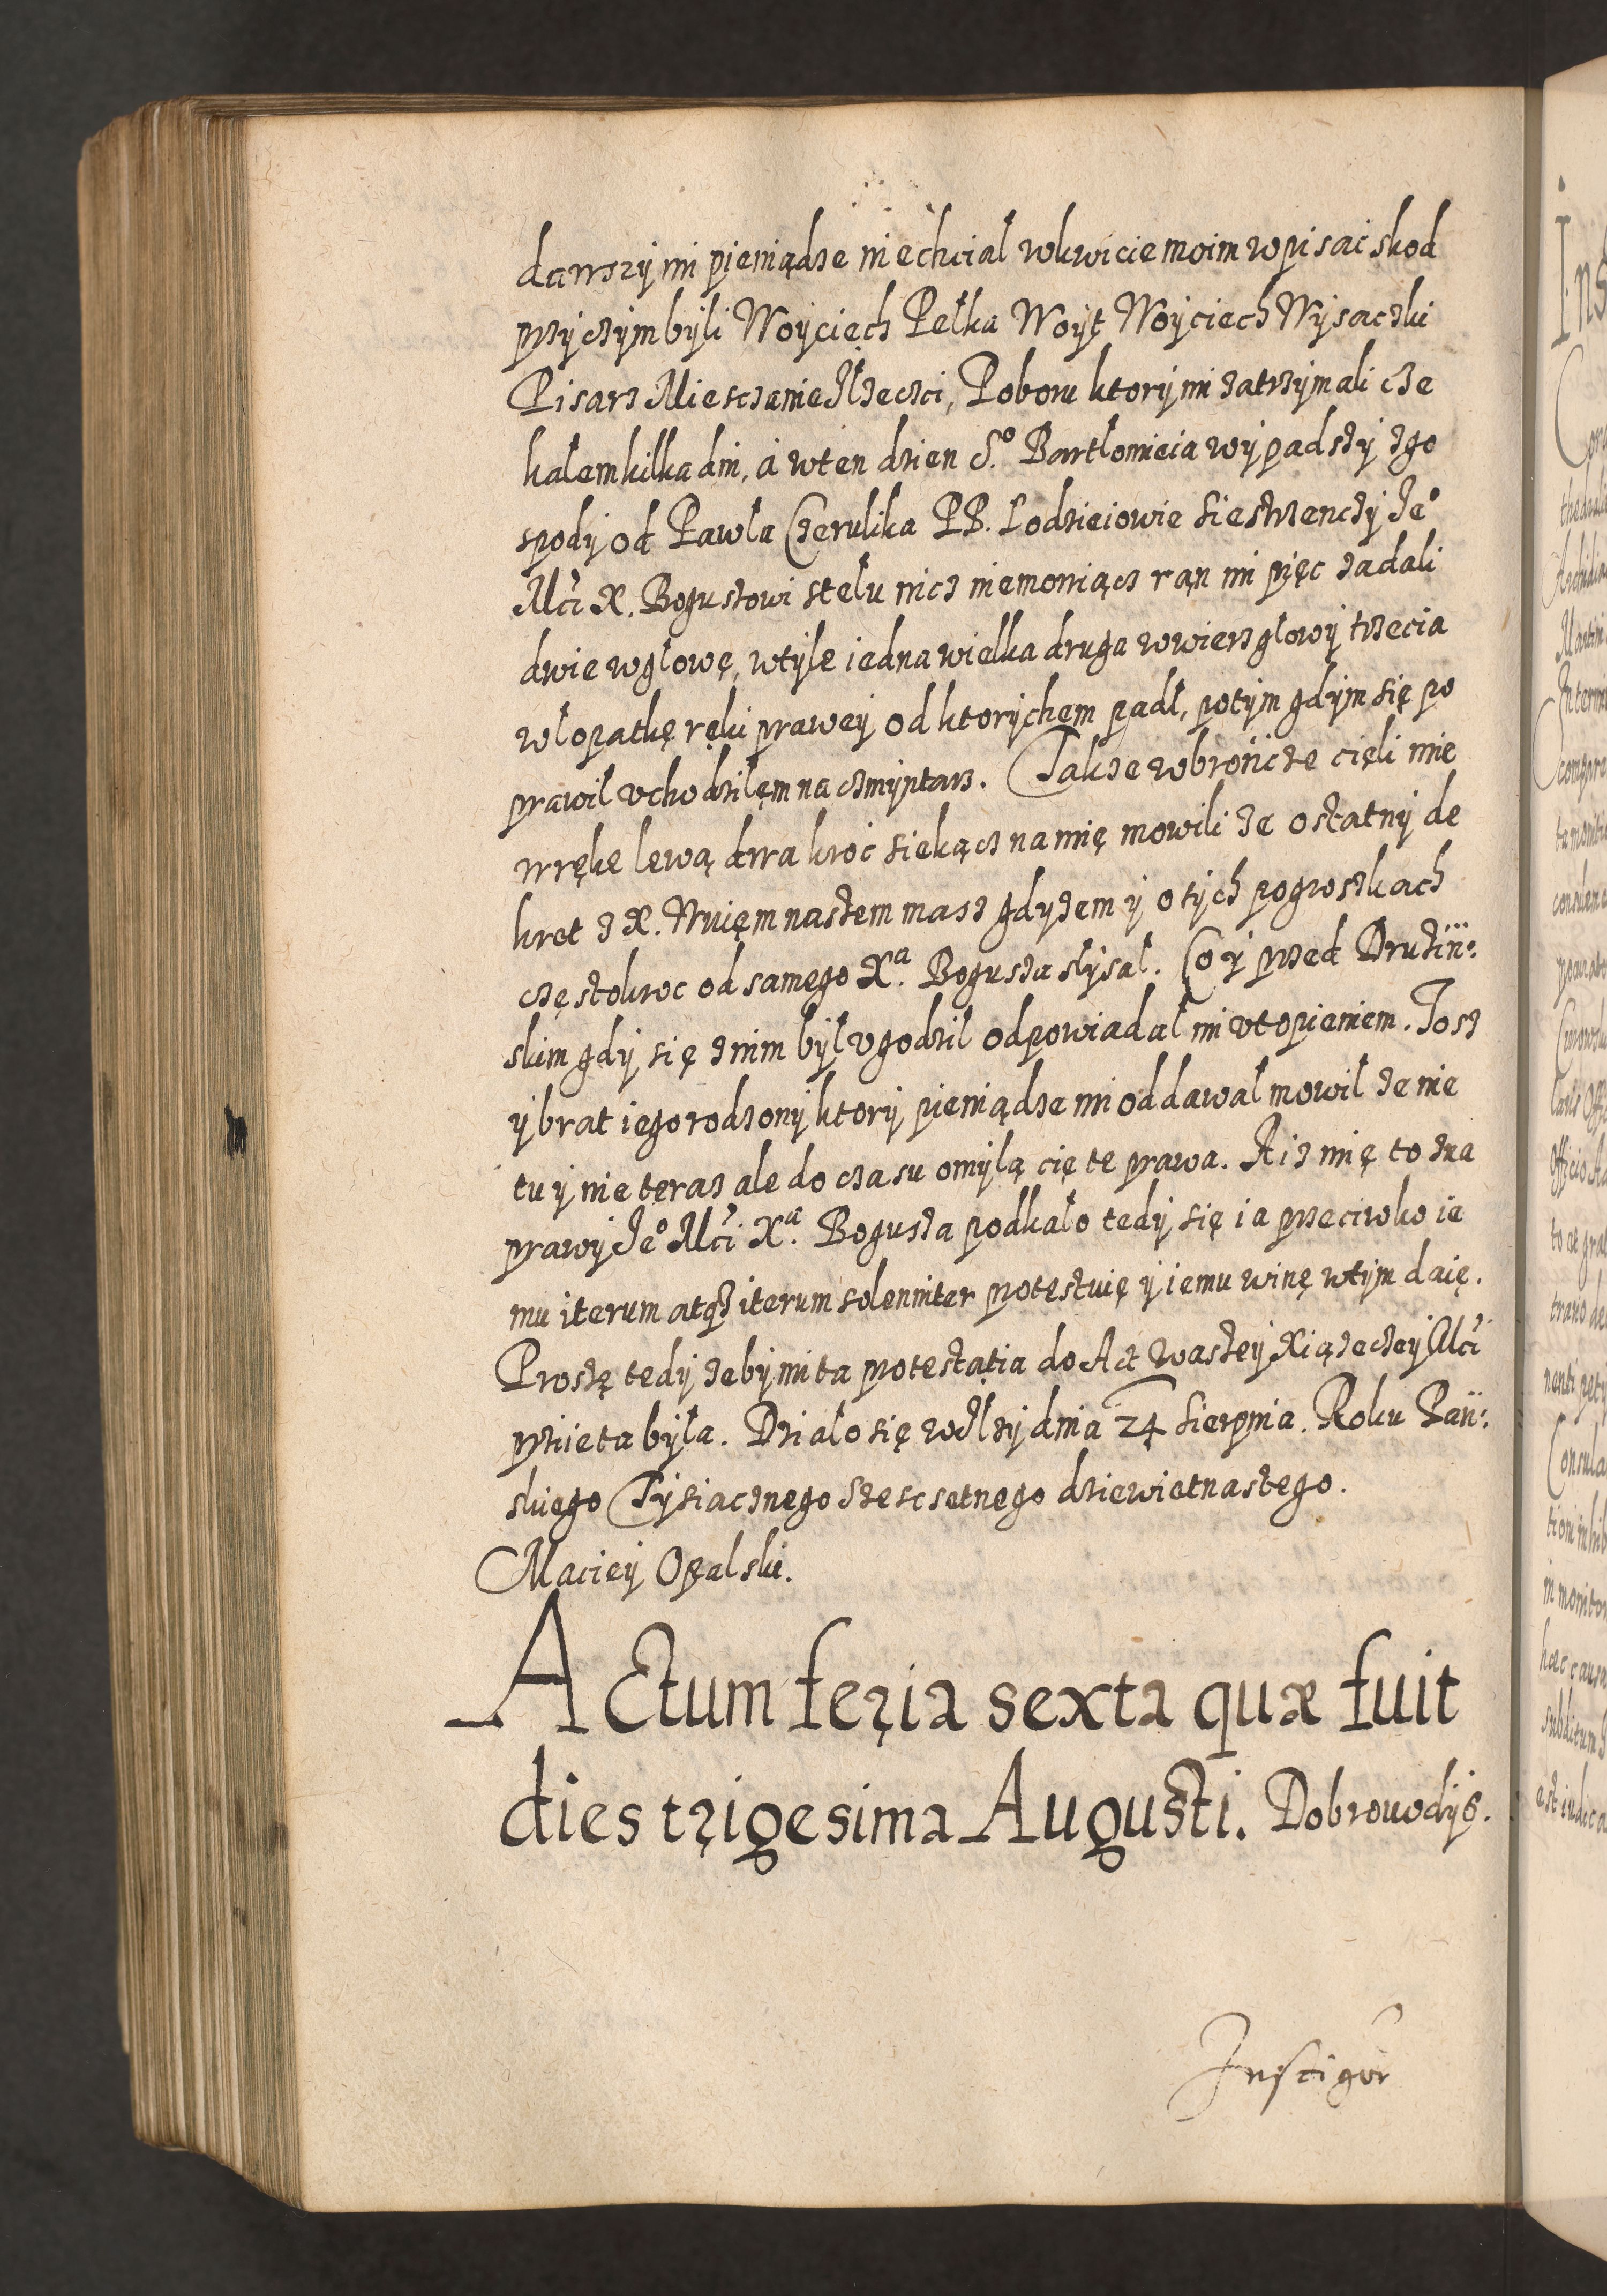 dawszy mi pieniądze niechcial wkwicie moim wpisać skod
przy czym byli Woyciech Pełka Woyt Woyciech Wysaczki
Pisarz Miesczanie Ilzeczci, Poboru ktory mi zatrzymali cze
kalem kilka dni, a wten dzien S.º Bartlomieia wypadszy zgo
spody od Pawla Czerulika PP. Lodzieiowie siestrzenczy Jeº
Mci X. Boguszowi stelu nicz niemowiącz ran mi pięc zadali
dwie wglowę, wtyle iedna wielka druga wwierz glowy trzecia
wlopatkę ręki prawey od ktorychem padl, potym gdym się po
prawil vchodzilęm na czmyntarz. Takze wbronicze cięli mie
wrękę lewą dwa kroc siekącz na mię mowili ze ostatny de
kret z X. Wuięm naszem masz gdyzem y o tych pogroszkach
częstokroc od samego Xª. Bogusza slysal. Co y przed Druzin:
skim gdy się znim byl vgodzil odpowiadal mi vtopieniem. Tosz
y brat iego rodzony ktory pieniądze mi oddawal mowil ze nie
tu y nie teraz ale do czasu omylą cię te prawa. A iz mię to zna
prawy Jeº Mci Xª. Bogusza podkalo tedy się ia przeciwko ie
mu iterum atqz iterum solenniter protestuię y iemu winę wtym daię.
Proszę tedy zeby mi ta protestatia do Act waszey Xiązeczey Mci
prziieta byla. Dzialo się wIlzy dnia 24 Sierpnia. Roku Pan:
skiego Tysiacznego Szescsetnego dziewietnastego.
Maciey Opalski.
Actum feria sexta quæ fuit
dies trigesima Augusti. Dobrowodys.
Instigor